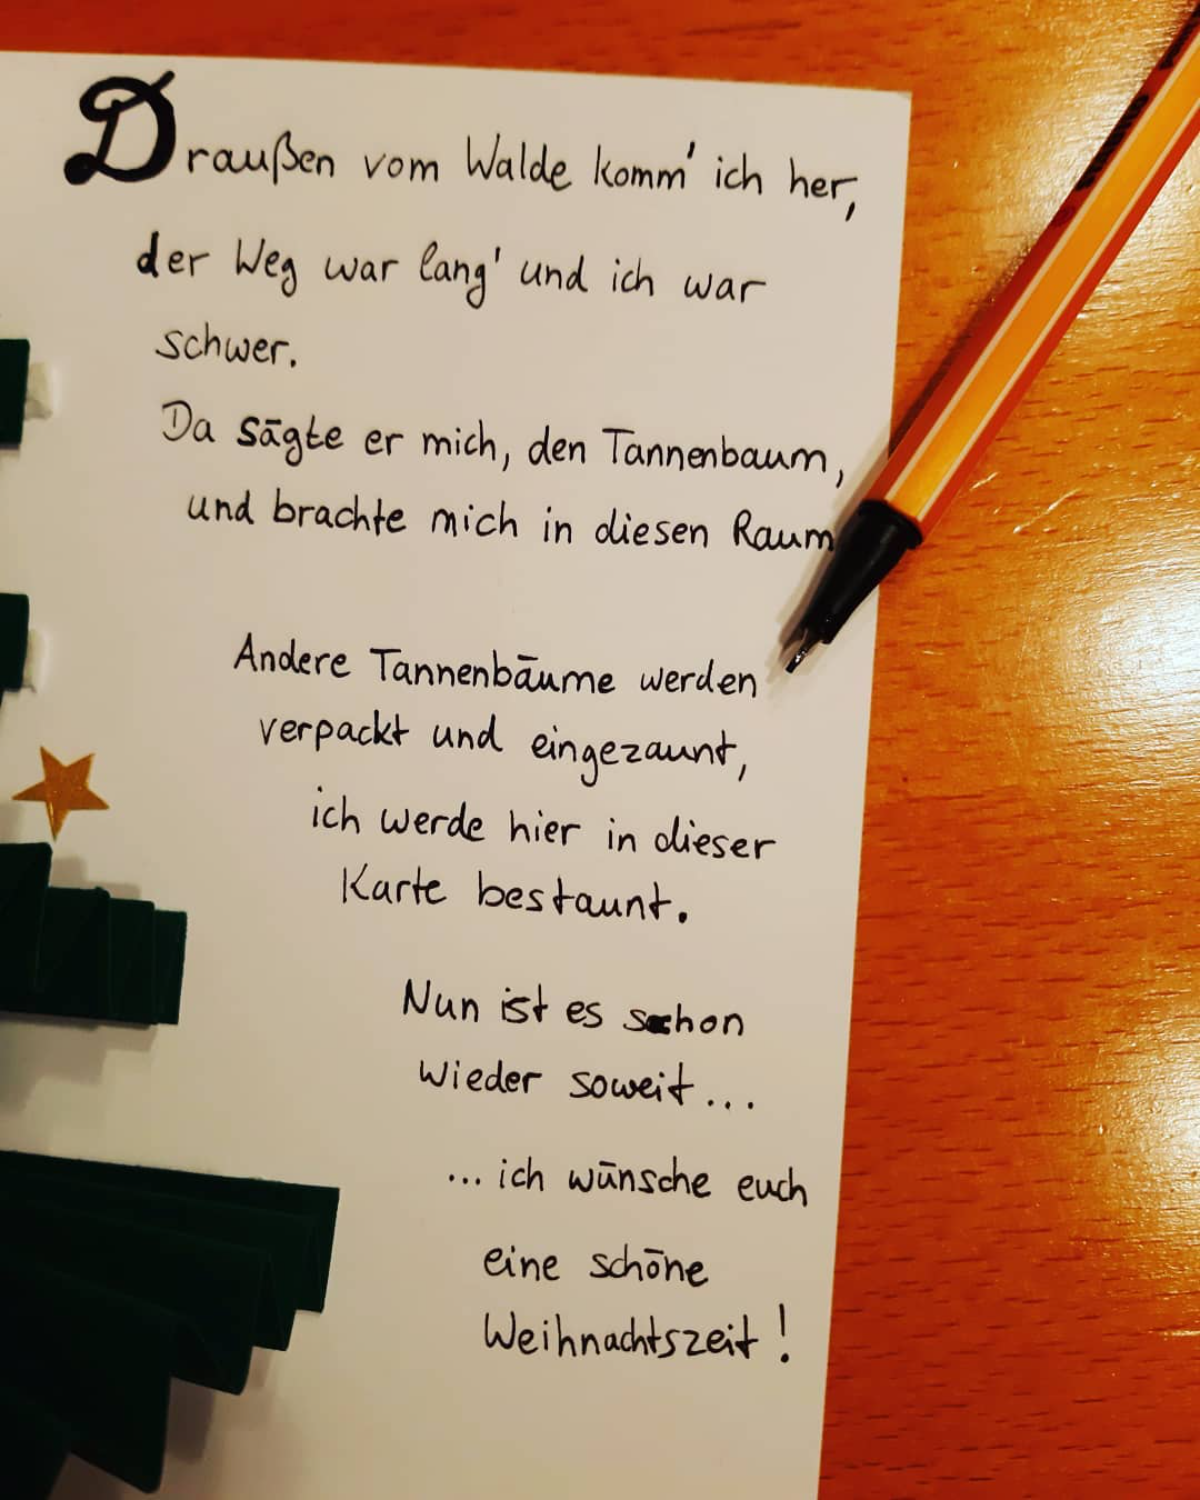 Draußen vom Walde komm' ich her,
der Weg war lang' und ich war
schwer.
Da sägte er mich, den Tannenbaum,
und brachte mich in diesen Raum
Andere Tannenbäume werden
verpackt und eingezaunt,
ich werde hier in dieser
Karte bestaunt.
Nun ist es schon
wieder soweit...
... ich wünsche euch
eine schöne
Weihnachtszeit!